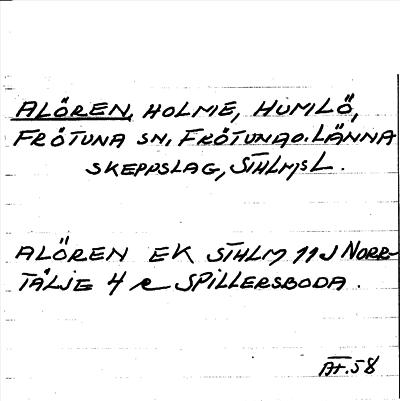 ALÖREN, HOLME, HUMLÖ,
FRÖTUNA SN, FRÖTUNA O. LÄNNA
SKEPPSLAG, STHLMS L.
ALÖREN EK STHLM 11J NORR-
TÄLJE 4 e SPILLERSBODA.
AF.58